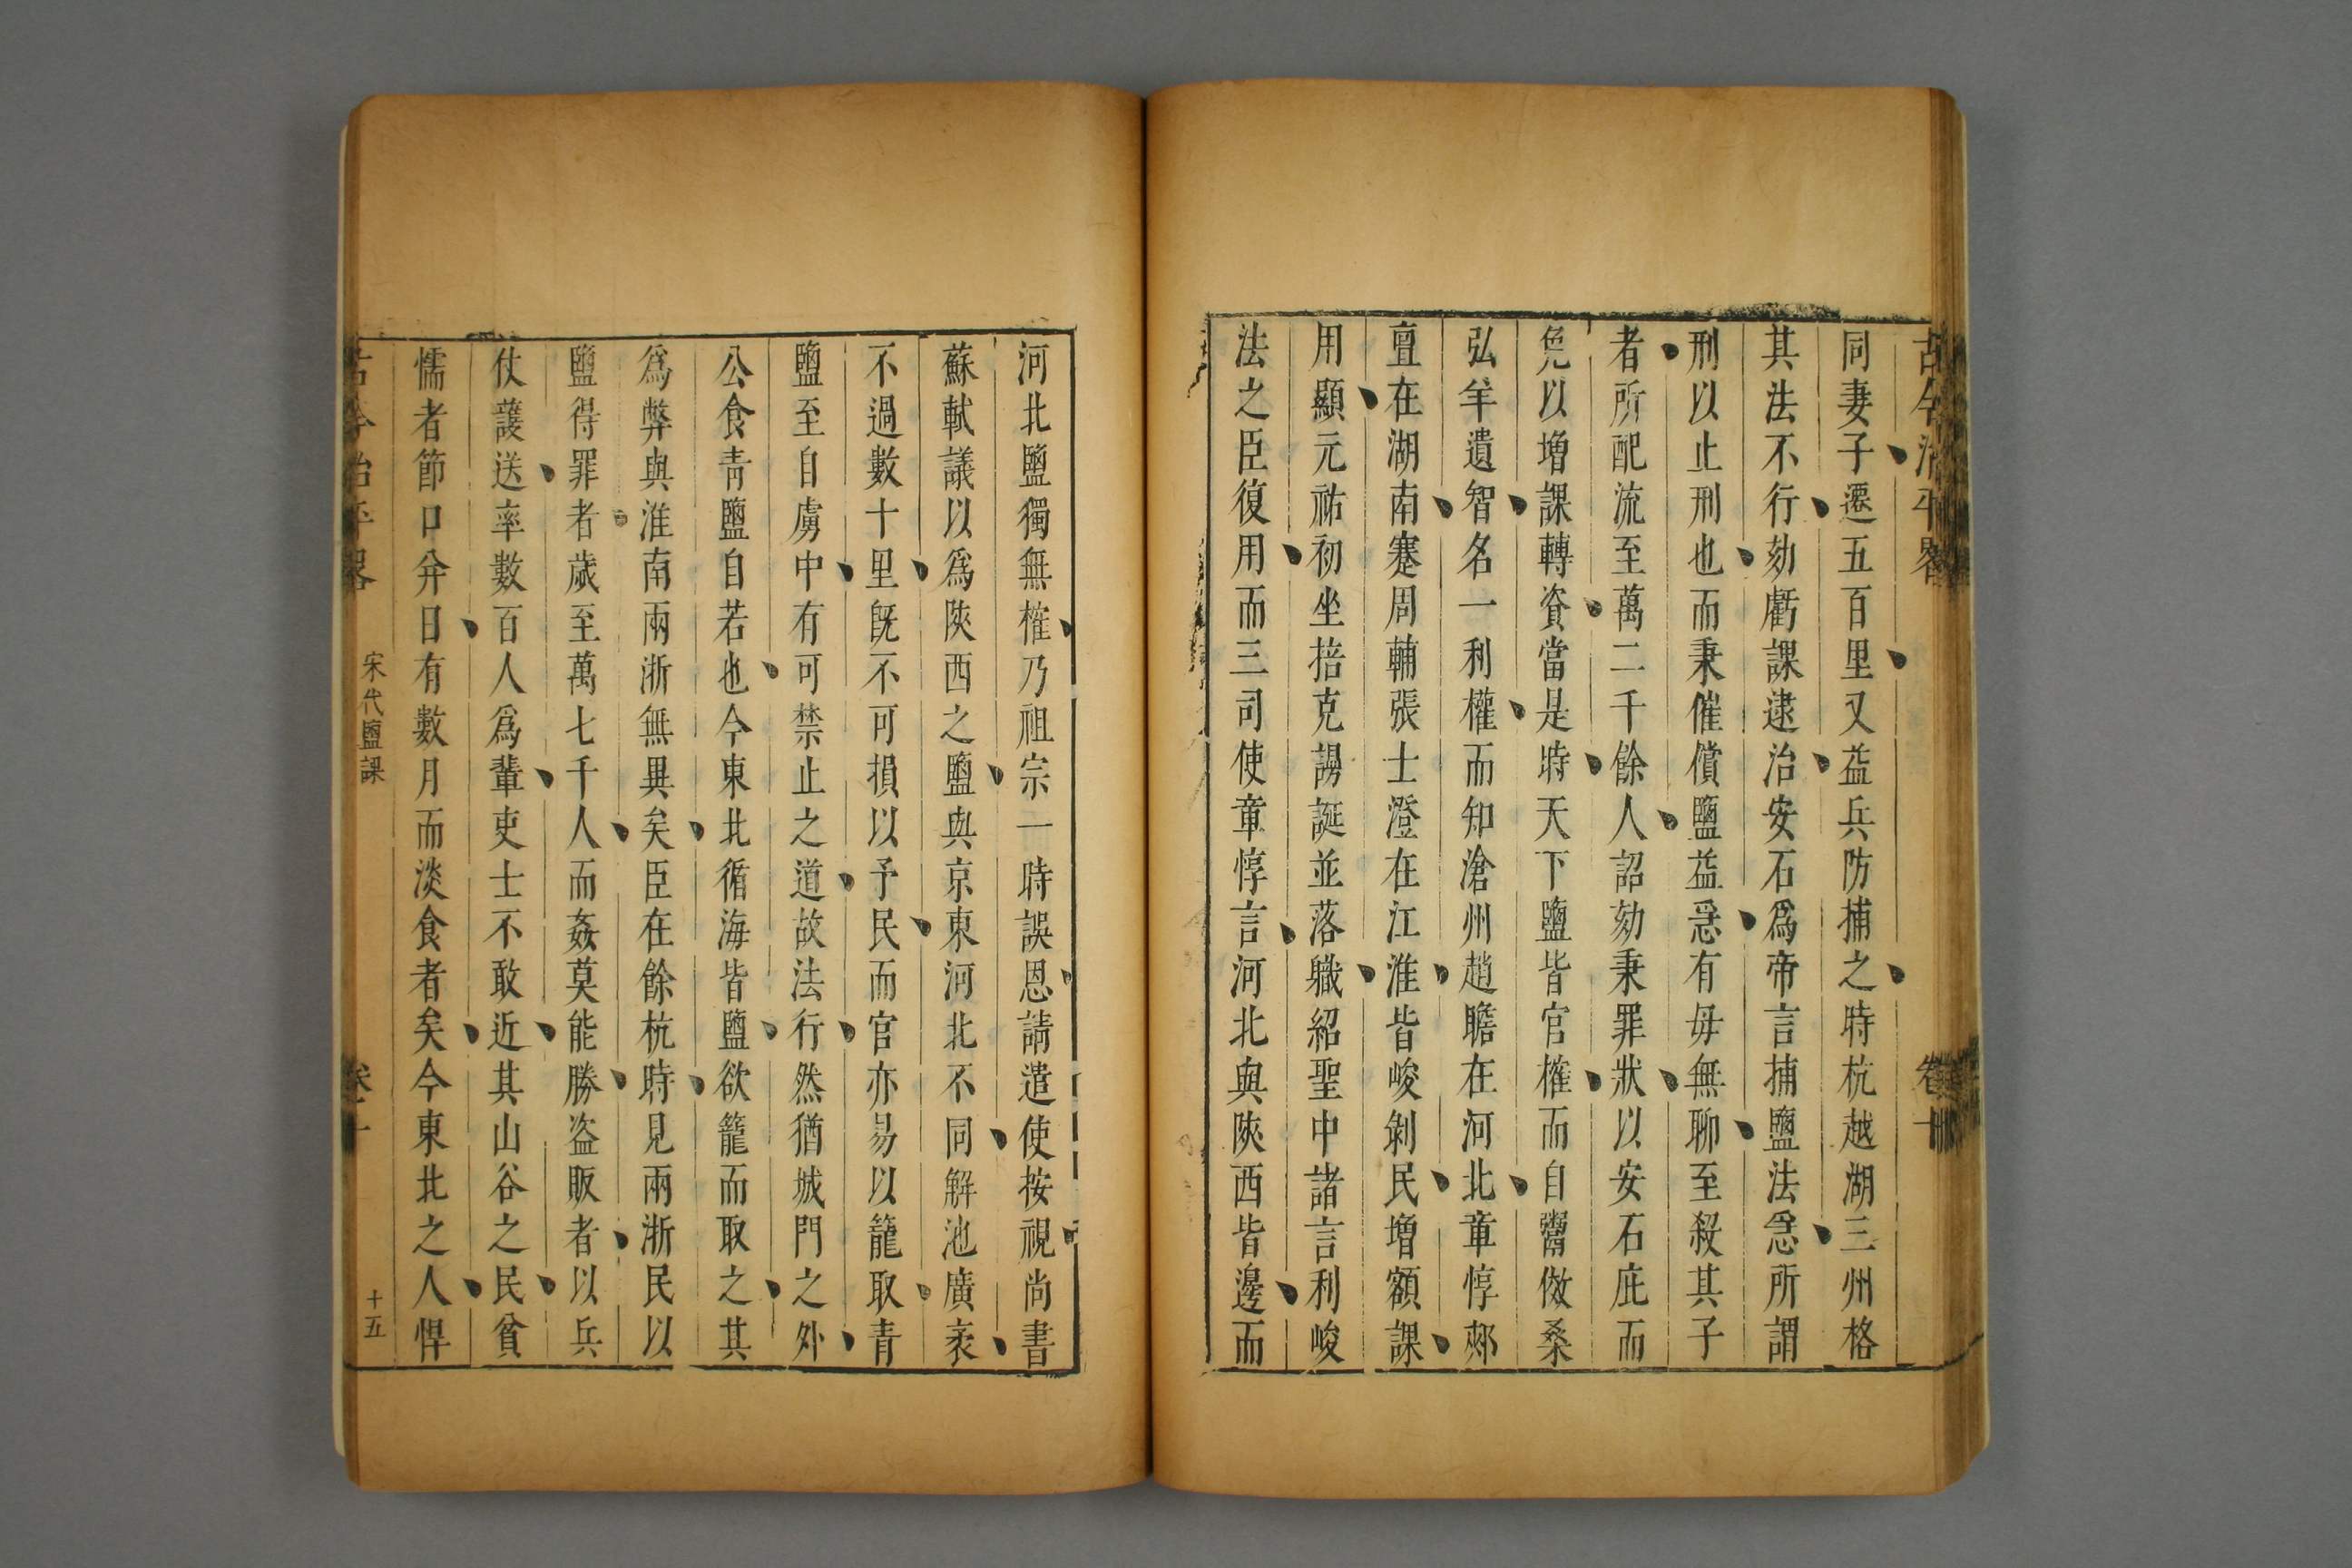 古今治平畧
卷十
同妻子遷五百里又益兵防捕之時杭越湖三州格
其法不行劾虧課逮治安石爲帝言捕鹽法急所謂
刑以止刑也而秉催償鹽益急有毋無聊至殺其子
者所配流至萬二千餘人詔劾秉罪狀以安石庇而
免以增課轉資當是時天下鹽皆官榷而自鬻倣桑
弘羊遺智名一利權而知滄州趙瞻在河北章惇郟
亶在湖南蹇周輔張士澄在江淮皆峻剝民增額課
用顯元祐初坐掊克謭誕並落職紹聖中諸言利峻
法之臣復用而三司使章惇言河北與陝西皆邊而
河北鹽獨無榷乃祖宗一時誤恩請遣使按視尚書
蘇軾議以爲陝西之鹽與京東河北不同解池廣袤
不過數十里既不可損以予民而官亦易以籠取青
鹽至自虜中有可禁止之道故法行然猶城門之外
公食青鹽自若也今東北循海皆鹽欲籠而取之其
爲弊與淮南兩浙無異矣臣在餘杭時見兩浙民以
鹽得罪者歲至萬七千人而姦莫能勝盜販者以兵
仗護送率數百人爲輩吏士不敢近其山谷之民貧
懦者節口弁日有數月而淡食者矣今東北之人悍
古今治平畧
宋代鹽課
卷十
十五